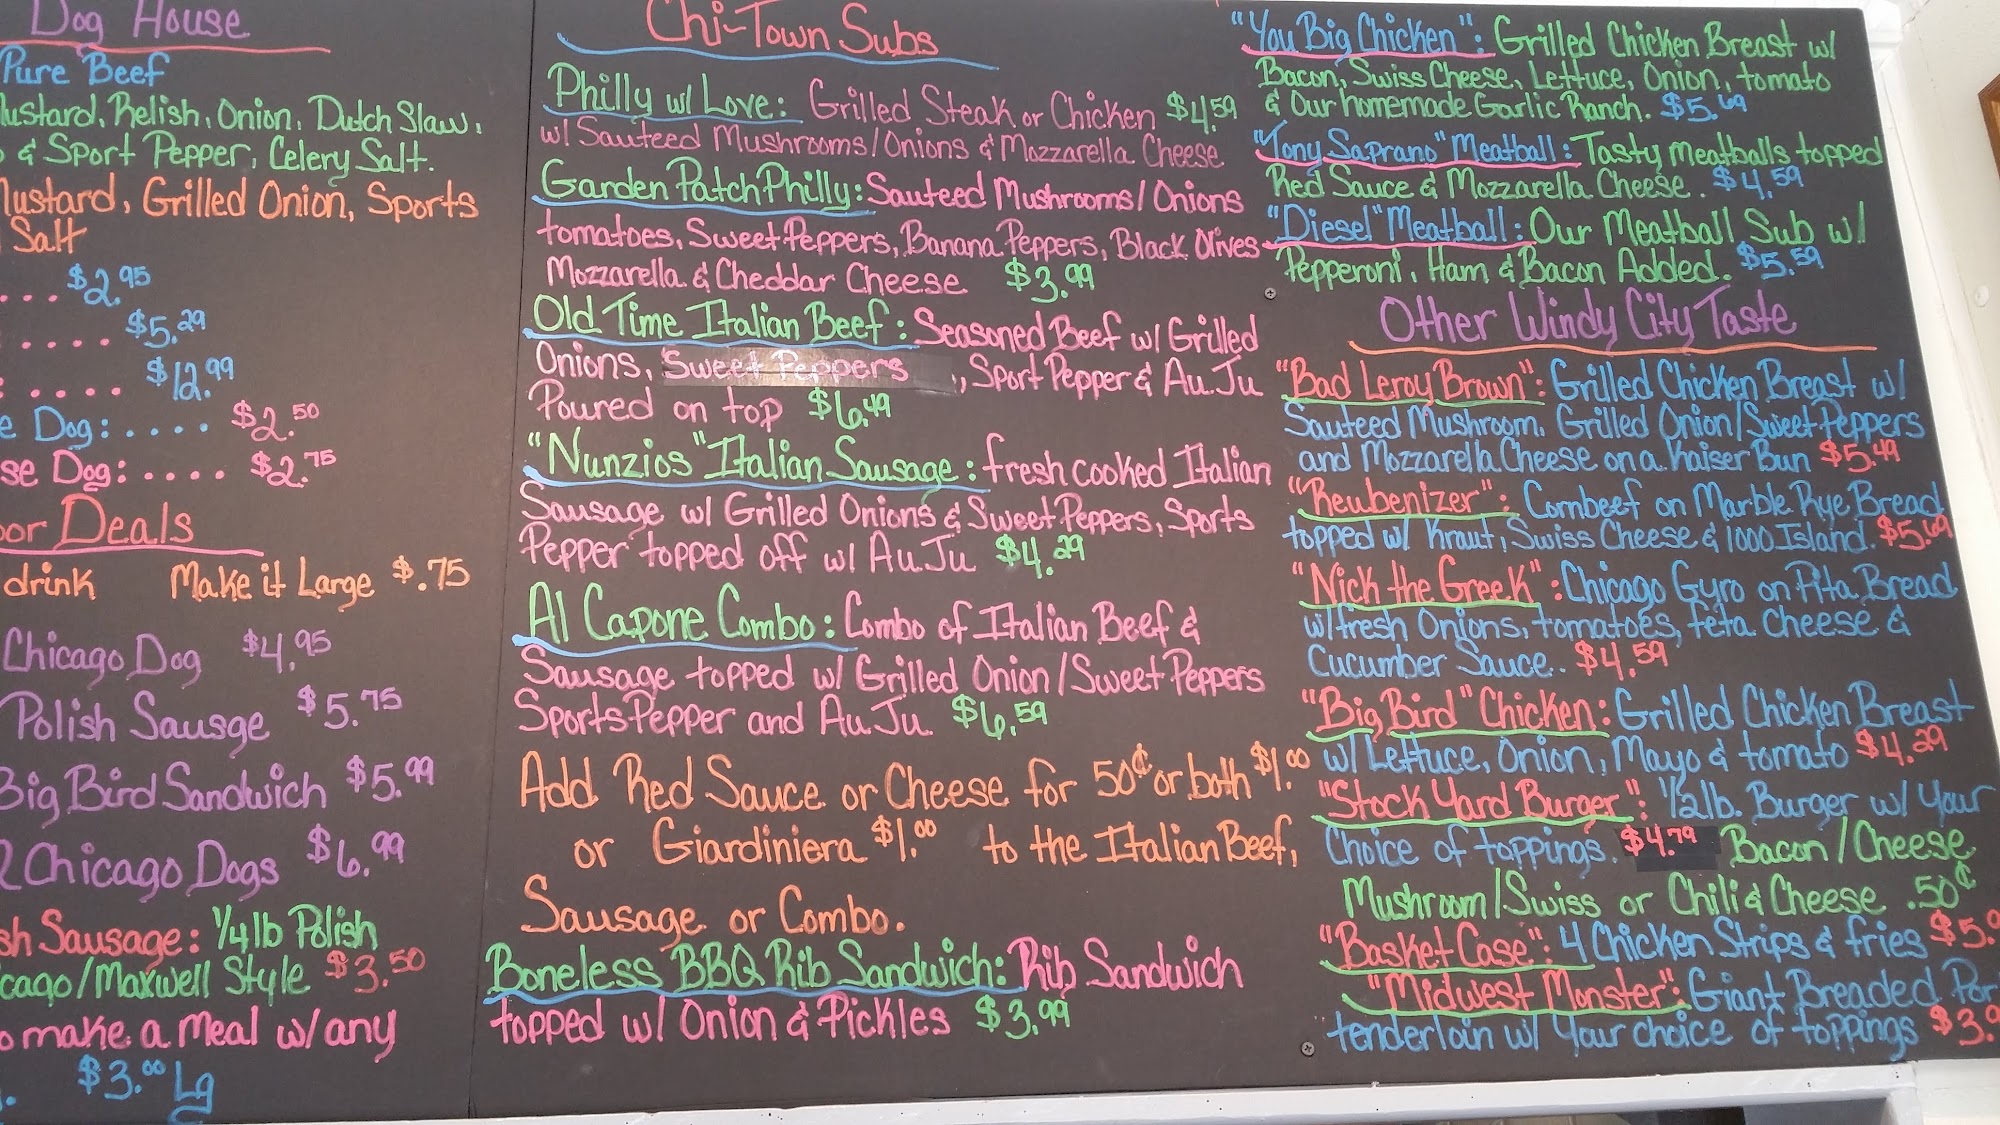 Dog House
Pure Beef
Mustard, Relish, Onion, Dutch Slaw,
& Sport Pepper, Celery Salt.
Mustard, Grilled Onion, Sports
Salt
. . . $2.95
. . . . . $5.29
. . . . . $12.99
Dog: . . . . $2.50
Dog: . . . . $2.75
Deals
drink Make it Large $.75
Chicago Dog $4.95
Polish Sausge $5.75
Big Bird Sandwich $5.99
2 Chicago Dogs $6.99
Sausage: 1/4 lb Polish
/Maxwell Style $3.50
make a meal w/ any
$3.00 Lg
Chi-Town Subs
Philly w/ Love: Grilled Steak or Chicken $4.59
w/ Sauteed Mushrooms/Onions & Mozzarella Cheese
Garden Patch Philly: Sauteed Mushrooms/Onions
tomatoes, Sweet Peppers, Banana Peppers, Black Olives
Mozzarella & Cheddar Cheese $3.99
Old Time Italian Beef: Seasoned Beef w/ Grilled
Onions, Sweet Peppers, Sport Pepper & Au Ju
Poured on top $6.49
"Nunzios" Italian Sausage: fresh cooked Italian
Sausage w/ Grilled Onions & Sweet Peppers, Sports
Pepper topped off w/ Au Ju $4.29
Al Capone Combo: Combo of Italian Beef &
Sausage topped w/ Grilled Onion/Sweet Peppers
Sports Pepper and Au Ju $6.59
Add Red Sauce or Cheese for 50¢ or both $1.00
or Giardiniera $1.00 to the Italian Beef,
Sausage or Combo.
Boneless BBQ Rib Sandwich: Rib Sandwich
topped w/ Onion & Pickles $3.99
"You Big Chicken": Grilled Chicken Breast w/
Bacon, Swiss Cheese, Lettuce, Onion, tomato
& Our homemade Garlic Ranch. $5.69
"Tony Saprano" Meatball: Tasty meatballs topped
Red Sauce & Mozzarella Cheese. $4.59
"Diesel" Meatball: Our Meatball Sub w/
Pepperoni, Ham & Bacon Added. $5.59
Other Windy City Taste
"Bad Leroy Brown": Grilled Chicken Breast w/
Sauteed Mushroom, Grilled Onion/Sweet Peppers
and Mozzarella Cheese on a Kaiser Bun $5.49
"Reubenizer": Cornbeef on Marble Rye Bread
topped w/ Kraut, Swiss Cheese & 1000 Island. $5.69
"Nick the Greek": Chicago Gyro on Pita Bread
w/ fresh Onions, tomatoes, feta cheese &
Cucumber Sauce.. $4.59
"Big Bird" Chicken: Grilled Chicken Breast
w/ Lettuce, Onion, Mayo & tomato $4.29
"Stock Yard Burger": 1/2 lb. Burger w/ Your
Choice of toppings. $4.79 Bacon/Cheese
Mushroom/Swiss or Chili & Cheese .50¢
"Basket Case": 4 Chicken Strips & fries
"Midwest Monster": Giant Breaded
tenderloin w/ Your choice of toppings